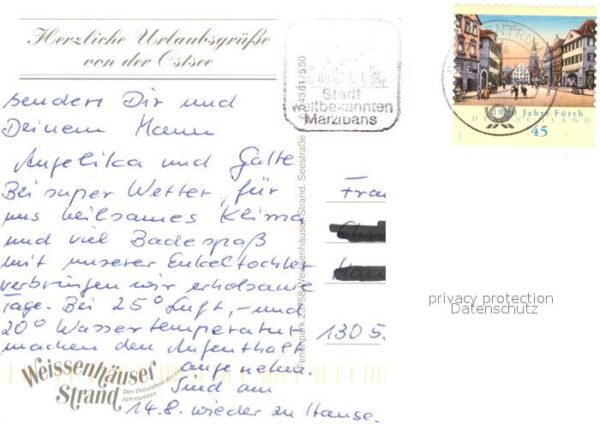 Herzliche Urlaubsgrüße
von der Ostsee
senden Dir und
Deinem Mann
Angelika und Gatte
Bei super Wetter, für
uns heilsames Klima
und viel Badespaß
mit unserer Enkeltochter
verbringen wir erholsame
Tage. Bei 25° Luft,- und
20° Wassertemperatur
machen den Aufenthalt
angenehm.
Sind am
14.8. wieder zu Hause.
Weissenhäuser
Strand
Das Ostseebad der vier
Jahreszeiten
Ferienpark 23758 Weissenhäuser Strand, Seestraße
04361/550
Lübeck
Stadt
weltbekannten
Marzipans
1000 Jahre Fürth
DEUTSCHLAND
45
Frau
1305.
privacy protection
Datenschutz